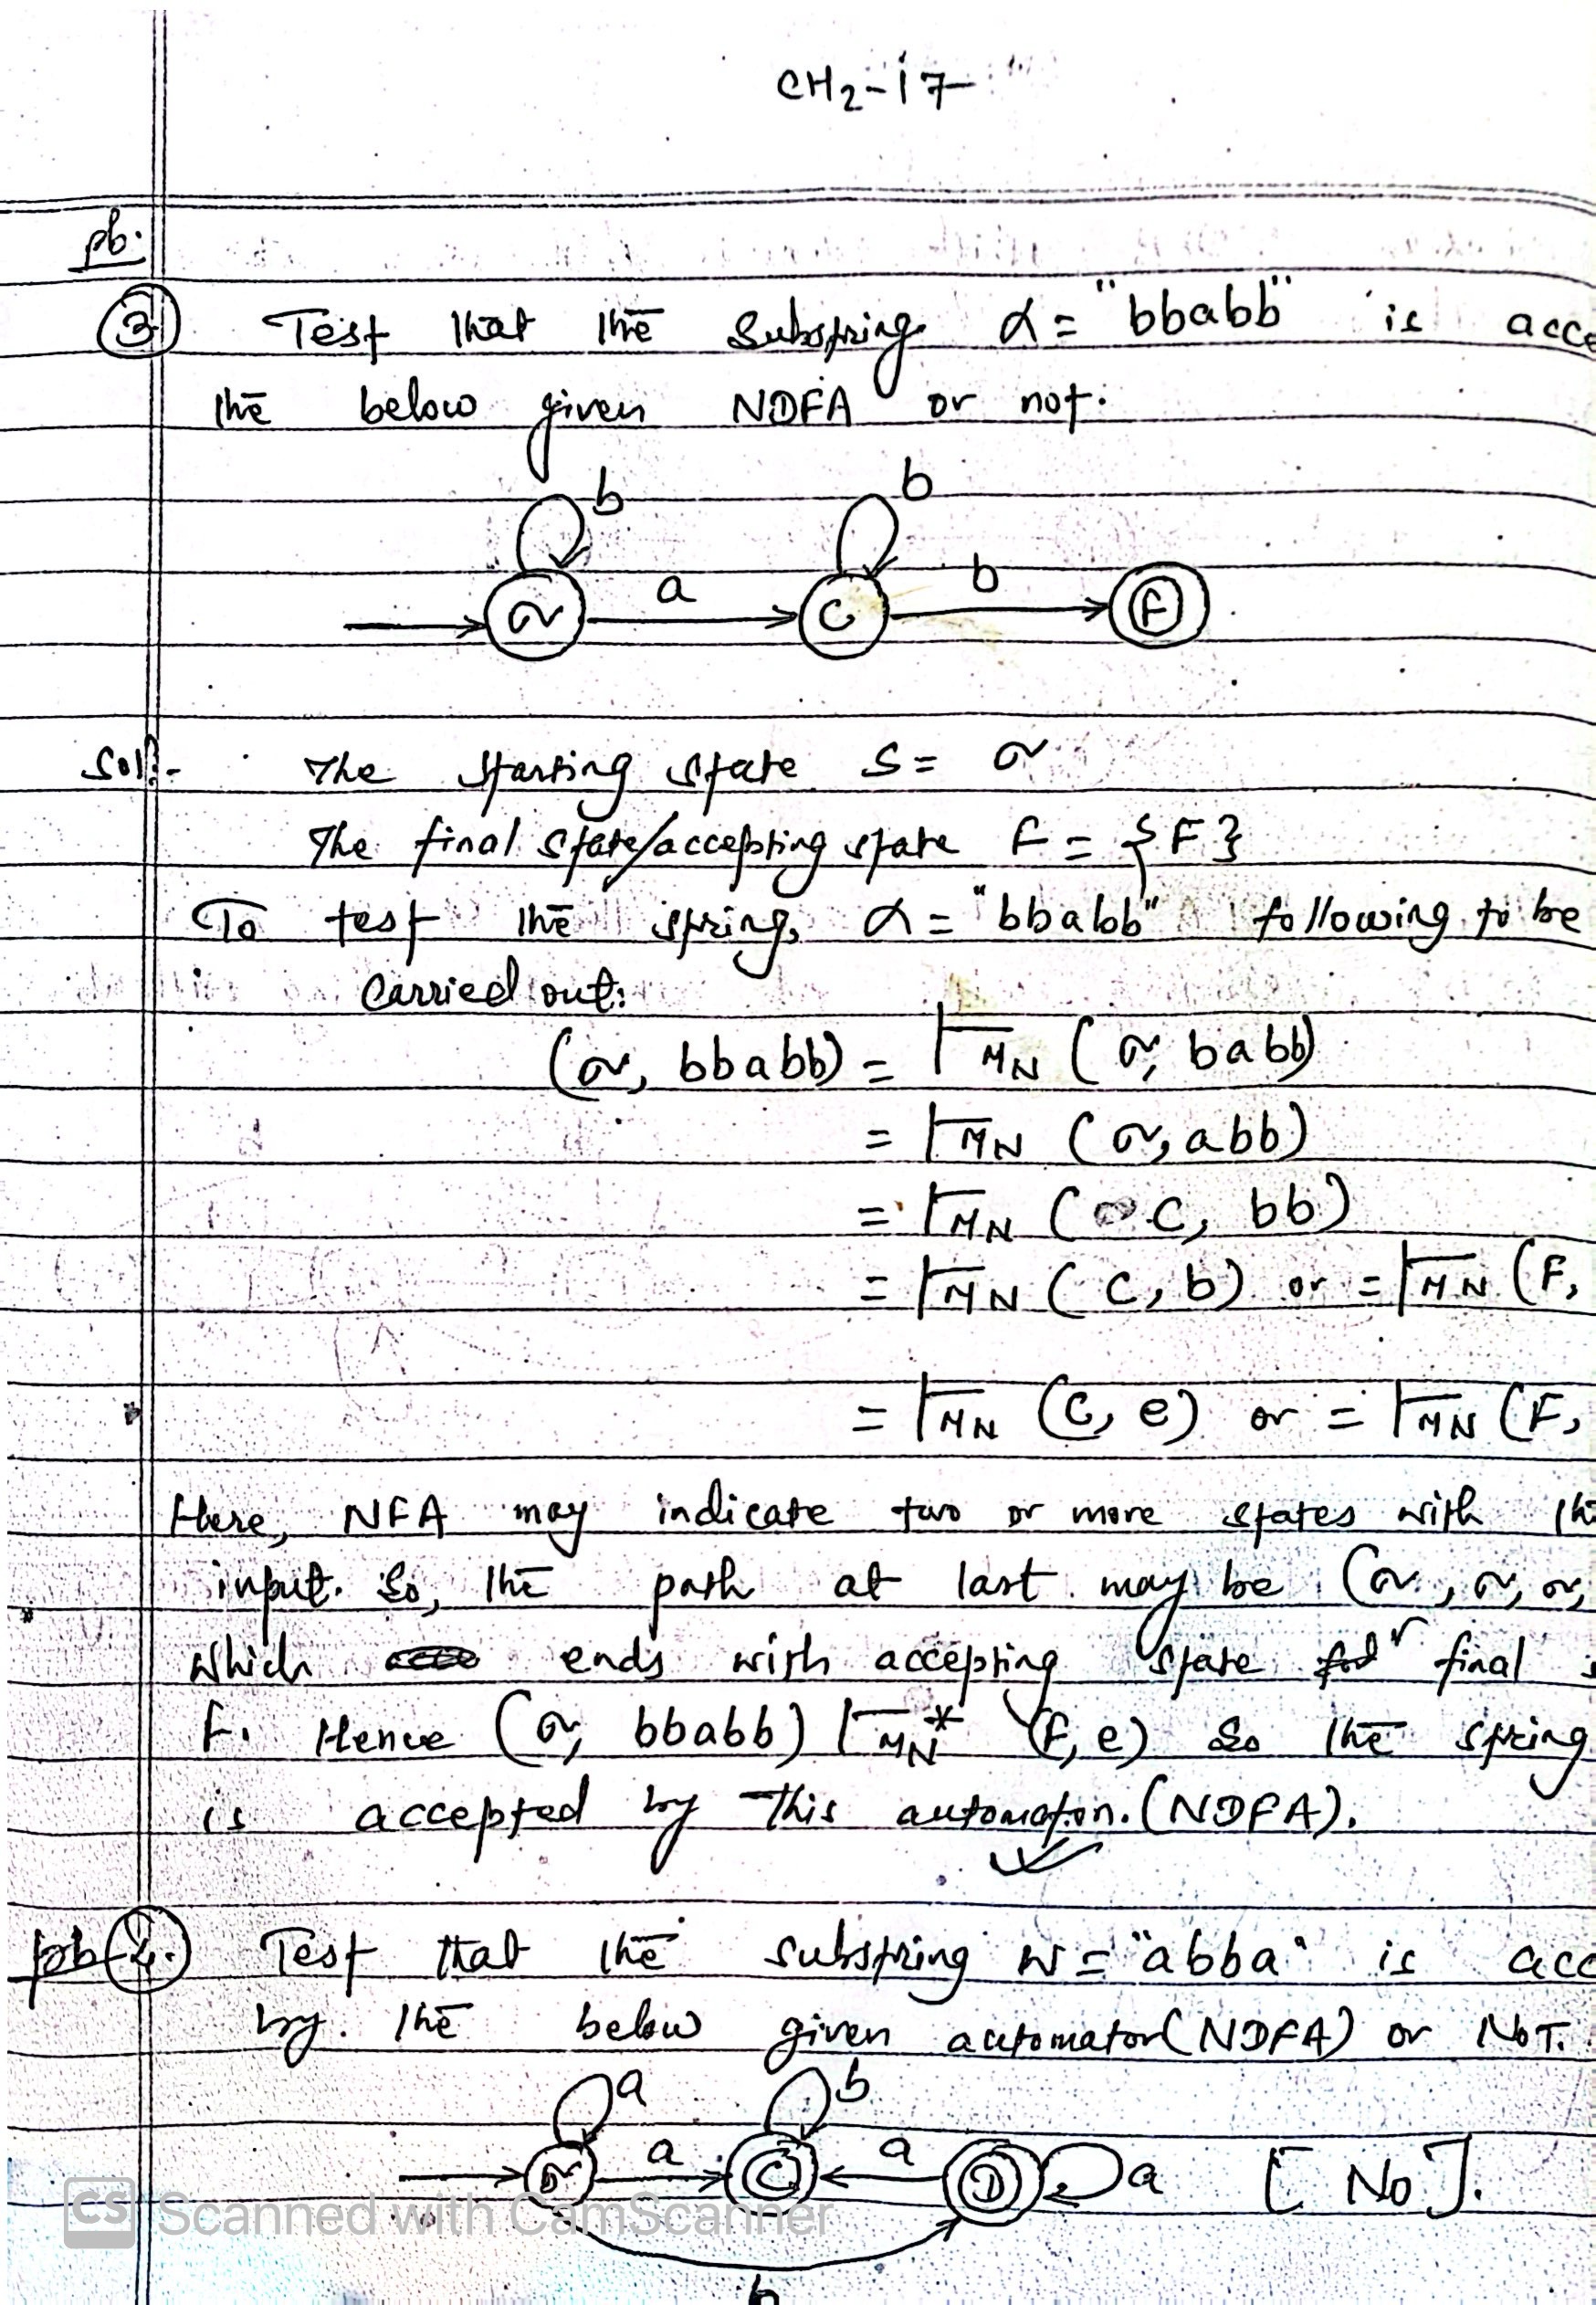 CH2-17
pb.
3 Test that the Substring α = "bbabb" is acce
the below given NDFA or not.
b b
σ a C b F
Solⁿ:- The starting state S = σ
The final state/accepting state F = {F}
To test the string, α = "bbabb" following to be
carried out:
(σ, bbabb) = ⊢MN (σ, babb)
= ⊢MN (σ, abb)
= ⊢MN (C, bb)
= ⊢MN (C, b) or = ⊢MN (F,
= ⊢MN (C, e) or = ⊢MN (F,
Here, NFA may indicate two or more states with
input. So, the path at last may be (σ, σ, σ,
which ends with accepting state or final
F. Hence (σ, bbabb) ⊢MN* (F, e) So the string
is accepted by this automaton. (NDFA).
pb 4. Test that the substring w = "abba" is acc
by the below given automaton (NDFA) or NOT.
a b
σ a C a D a [ No ].
b
CS Scanned with CamScanner